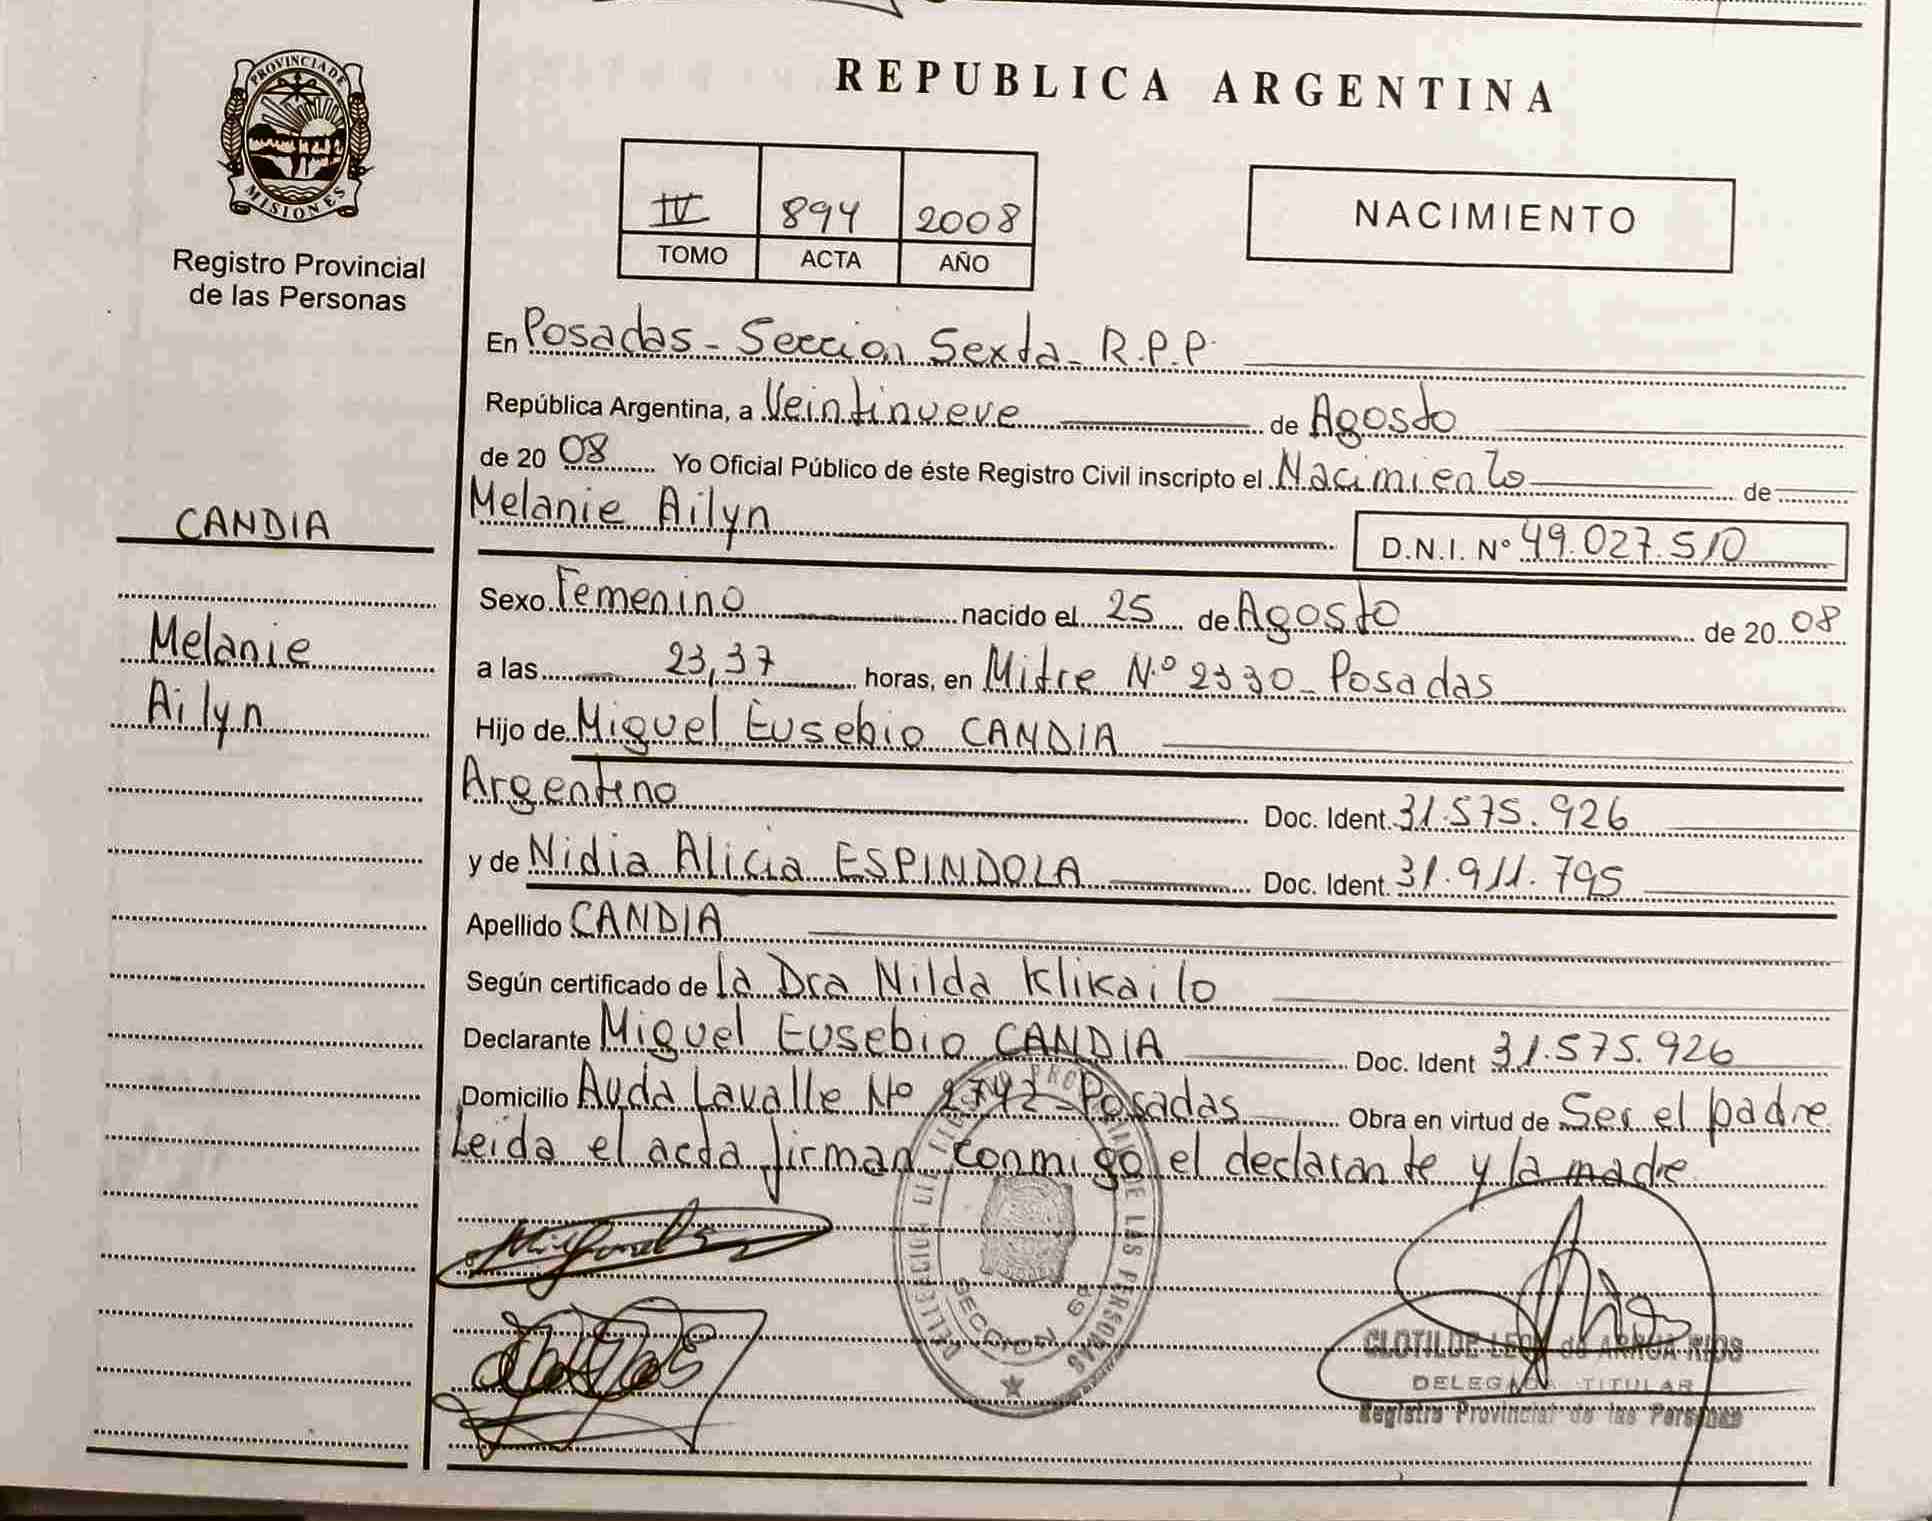 PROVINCIA DE
MISIONES
Registro Provincial
de las Personas
CANDIA
Melanie
Ailyn
REPUBLICA ARGENTINA
IV 894 2008
TOMO ACTA AÑO
NACIMIENTO
En Posadas - Seccion Sexta - R.P.P.
República Argentina, a Veintinueve de Agosto
de 20 08 Yo Oficial Público de éste Registro Civil inscripto el Nacimiento de
Melanie Ailyn D.N.I. Nº 49.027.510
Sexo Femenino nacido el 25 de Agosto de 20 08
a las 23,37 horas, en Mitre N.º 2330 - Posadas
Hijo de Miguel Eusebio CANDIA
Argentino Doc. Ident. 31.575.926
y de Nidia Alicia ESPINDOLA Doc. Ident. 31.911.795
Apellido CANDIA
Según certificado de la Dra Nilda Klikailo
Declarante Miguel Eusebio CANDIA Doc. Ident 31.575.926
Domicilio Avda Lavalle Nº 2742 - Posadas Obra en virtud de Ser el padre
Leida el acta firman conmigo el declarante y la madre
DE LAS PERSONAS
SECCION 6ª
CLOTILDE LEON de ARRUA RIOS
DELEGADA TITULAR
Registro Provincial de las Personas